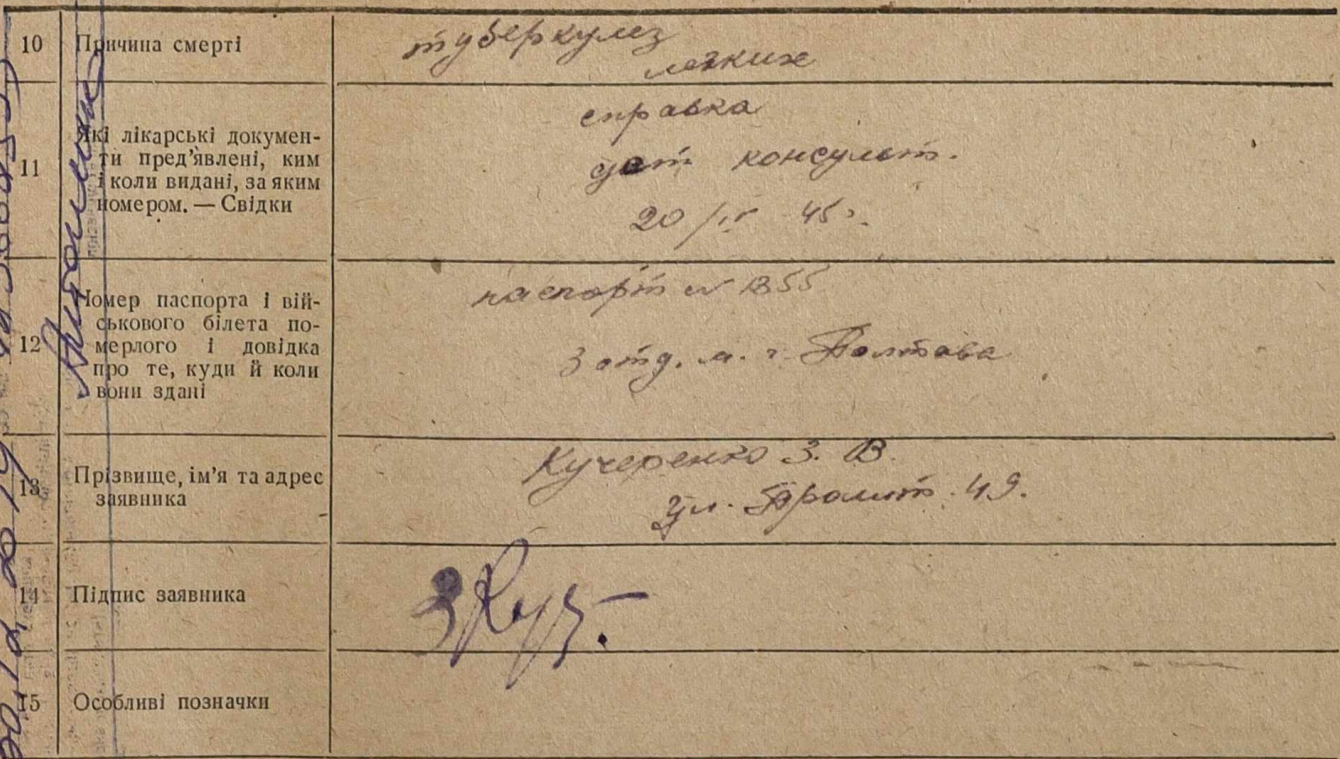 10 Причина смерті
туберкулез
легких
11 Які лікарські докумен-
ти пред’явлені, ким
і коли видані, за яким
номером. — Свідки
справка
дет консульт.
20/IV 45
12 Номер паспорта і вій-
ськового білета по-
мерлого і довідка
про те, куди й коли
вони здані
паспорт №
3 отд. м. г. Полтава
13 Прізвище, ім’я та адрес
заявника
Кучеренко З. В.
ул. 49.
14 Підпис заявника
15 Особливі позначки